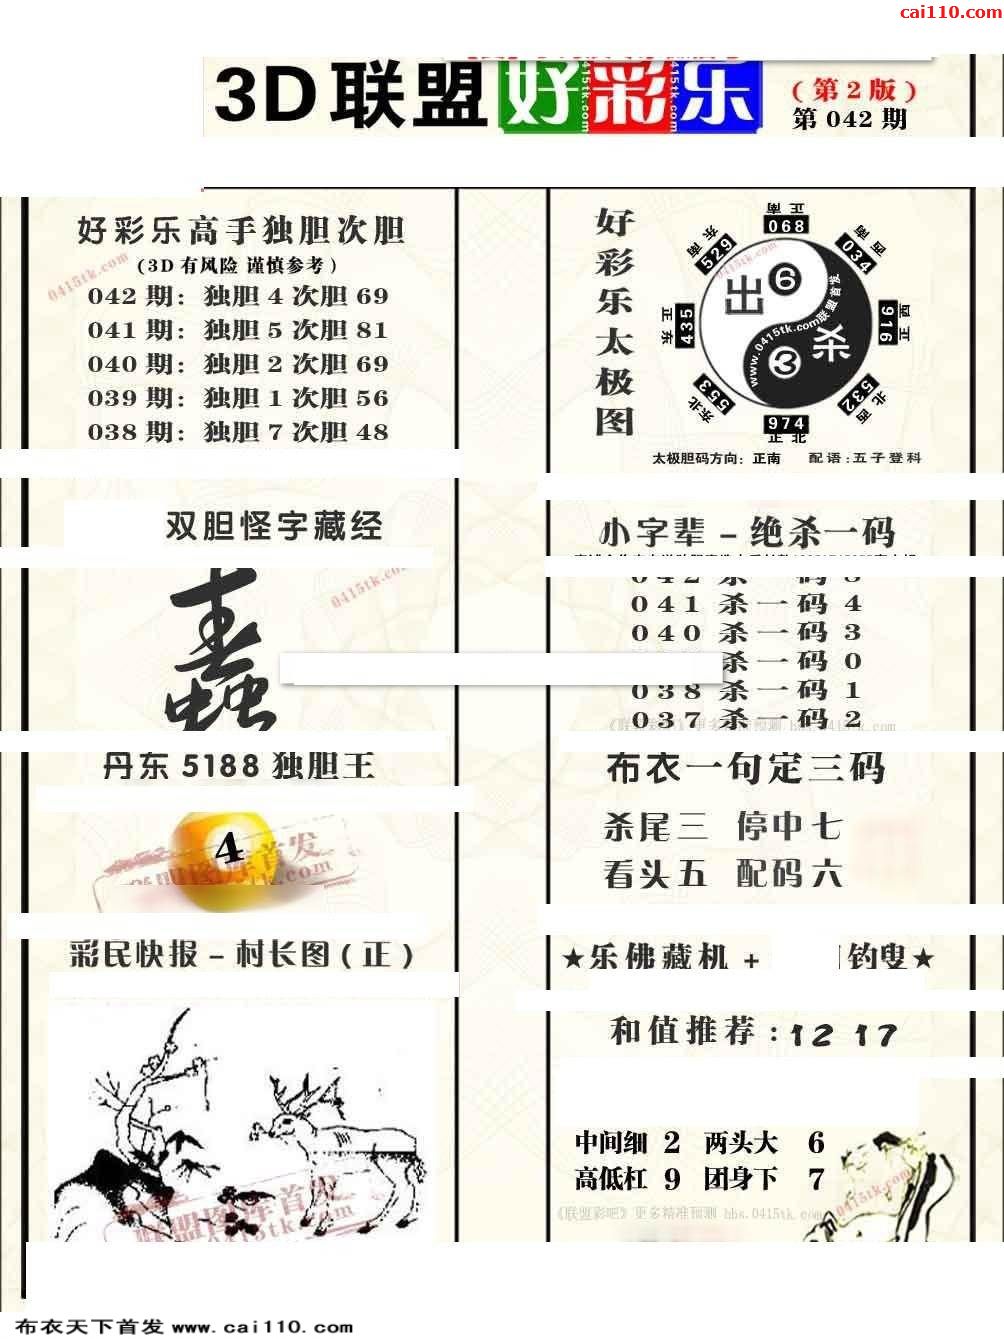 cai110.com
3D联盟 好彩乐
(第2版)
第042期
好彩乐高手独胆次胆
(3D有风险 谨慎参考)
042期: 独胆4次胆69
041期: 独胆5次胆81
040期: 独胆2次胆69
039期: 独胆1次胆56
038期: 独胆7次胆48
0415tk.com
好彩乐太极图
正南
068
东南
529
西南
034
正东
435
西正
916
东北
553
北西
532
974
正北
出 6
杀 3
www.0415tk.com联盟首发
太极胆码方向: 正南 配语:五子登科
双胆怪字藏经
0415tk.com
小字辈-绝杀一码
041 杀一码 4
040 杀一码 3
杀一码 0
038 杀一码 1
037 杀一码 2
丹东5188独胆王
4
联盟图库首发
布衣一句定三码
杀尾三 停中七
看头五 配码六
彩民快报-村长图(正)
联盟图库首发
★乐佛藏机+ 钓叟★
和值推荐:12 17
中间细 2 两头大 6
高低杠 9 团身下 7
《联盟彩吧》更多精准预测 bbs.0415tk.com
0415tk.com
布衣天下首发 www.cai110.com